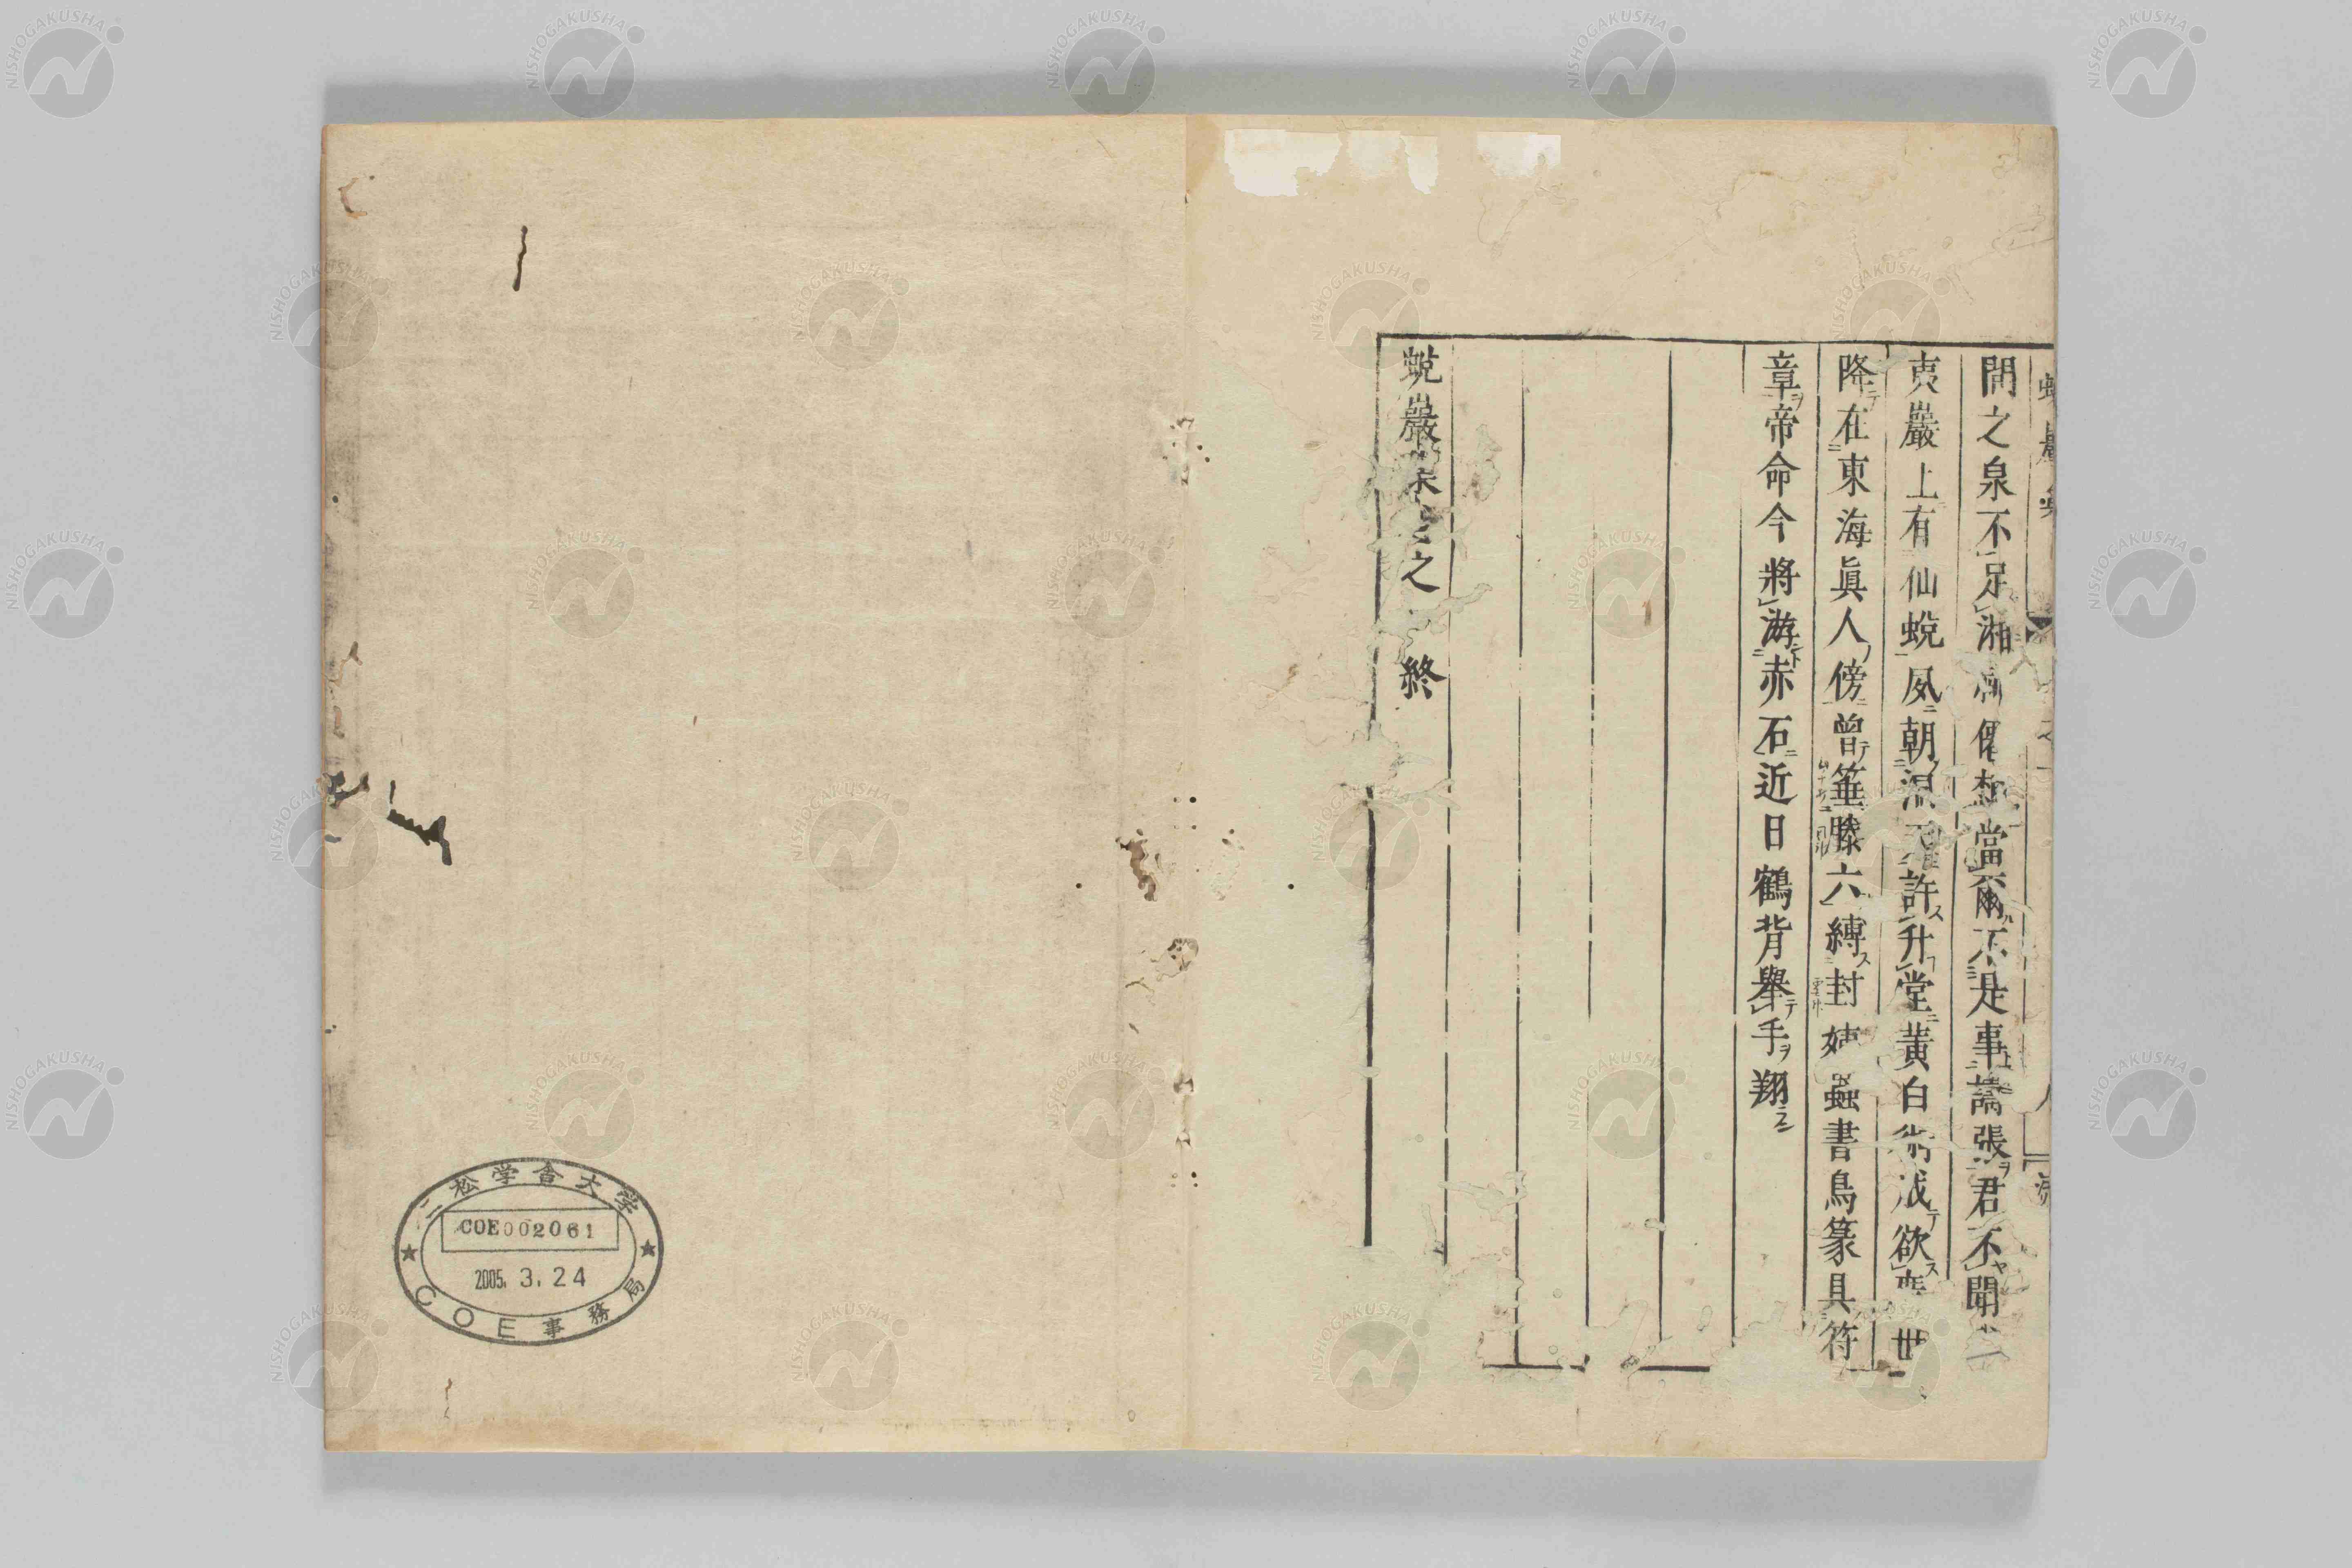 間之泉不足湘 當爾不是事譸張君不聞
夷巖上有仙蛻夙朝 許升堂黃白術成欲 世
降在東海眞人傍曾箠滕六縛封姨蟲書鳥篆具符
章帝命今將游赤石近日鶴背舉手翔
蛻巖集卷之 終
二松学舎大学
COE002061
2005. 3. 24
COE事務局
NISHOGAKUSHA